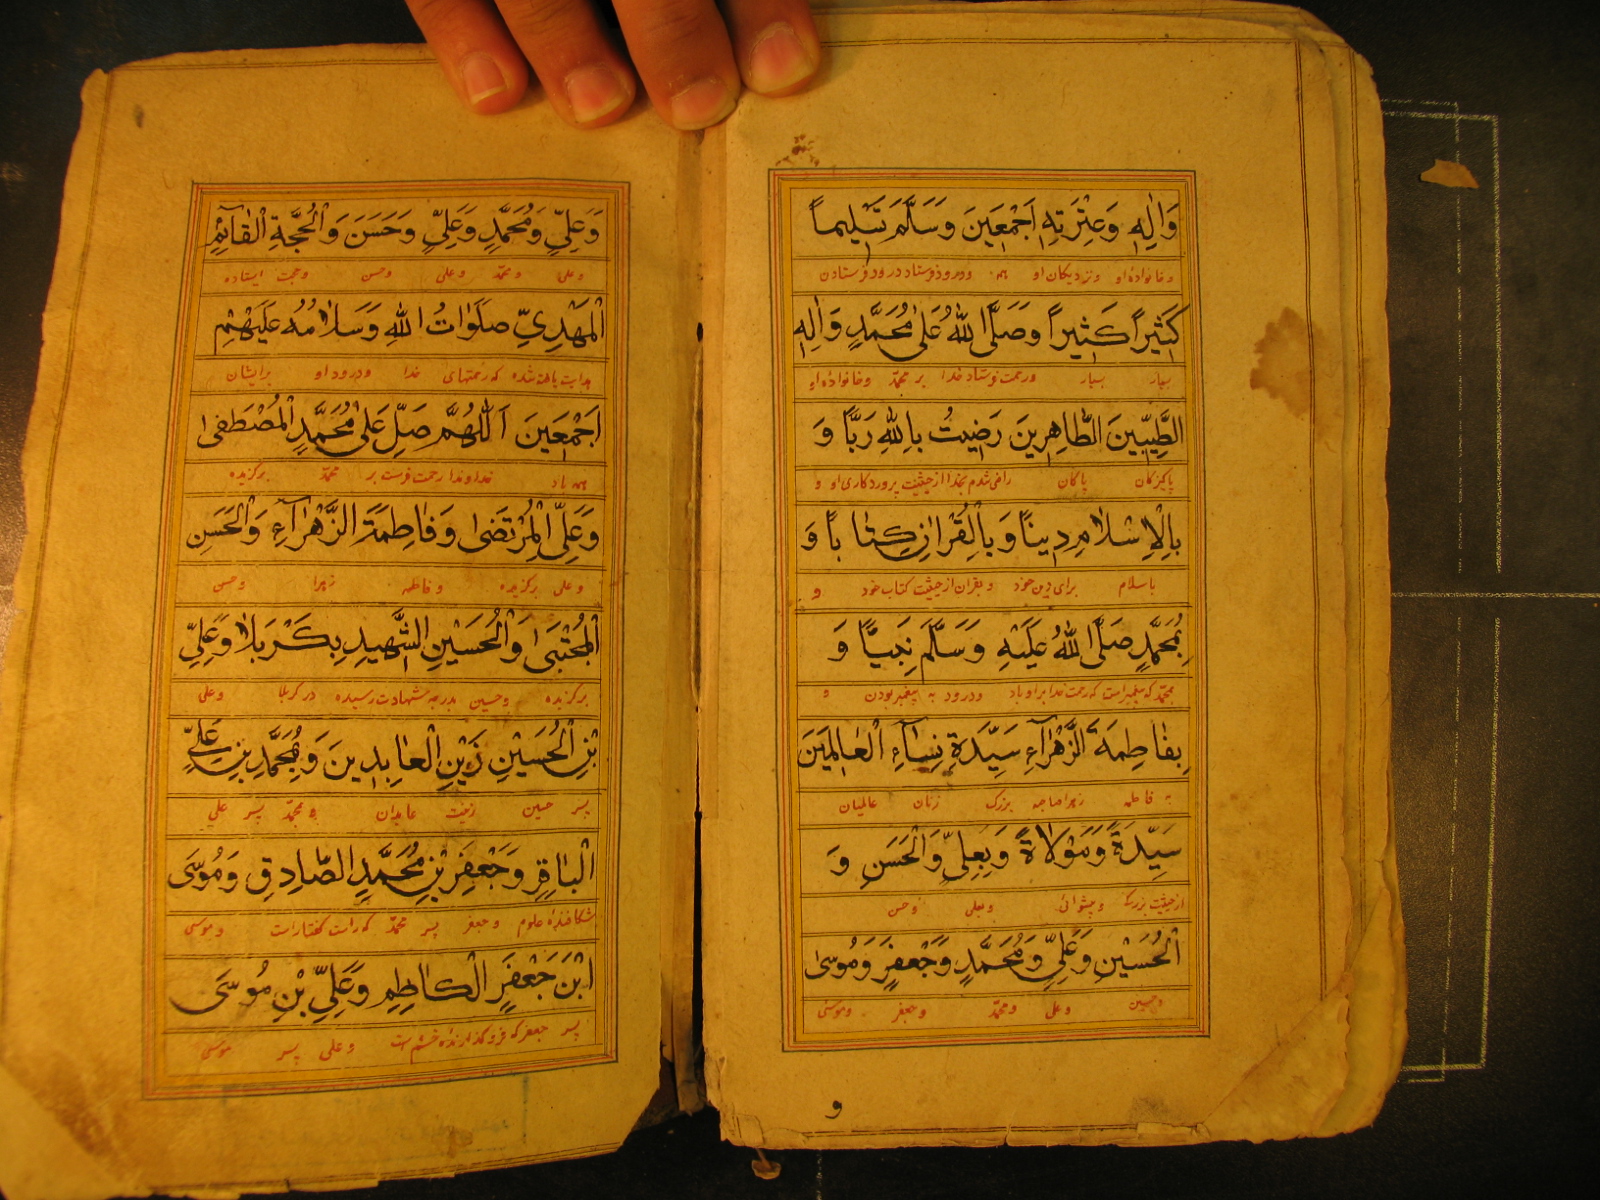 وَاٰلِهٖ وَعِتْرَتِهٖ اَجْمَعِينَ وَسَلَّمَ تَسْلِيماً
وخانواده او ونزدیکان او همه ودرود فرستاد درود فرستادن
كَثِيراً كَثِيراً وَصَلَّى اللهُ عَلٰى مُحَمَّدٍ وَاٰلِهِ
بسیار بسیار ورحمت فرستاد خدا بر محمّد وخانواده او
الطَّيِّبِينَ الطَّاهِرِينَ رَضِيتُ بِاللهِ رَبًّا وَ
پاکیزکان پاکان راضی شدم بخدا از حیثیت پروردکاری او و
بِالْاِسْلَامِ دِينًا وَبِالْقُرْاٰنِ كِتَاباً وَ
باسلام برای دین خود وبقران از حیثیت کتاب خود و
بِمُحَمَّدٍ صَلَّى اللهُ عَلَيْهِ وَسَلَّمَ نَبِيًّا وَ
بمحمّد که پیغمبر است که رحمت خدا بر او باد ودرود به پیغمبر بودن و
بِفَاطِمَةَ الزَّهْرَآءِ سَيِّدَةِ نِسَآءِ الْعٰالَمِينَ
به فاطمه زهرا صاحبه بزرک زنان عالمیان
سَيِّدَةً وَمَوْلَاةً وَبِعَلِيٍّ وَالْحَسَنِ وَ
از حیثیت بزرک وپیشوائی وبعلی وحسن
الْحُسَيْنِ وَعَلِيٍّ وَمُحَمَّدٍ وَجَعْفَرٍ وَمُوسٰى
وحسین وعلی ومحمّد وجعفر وموسی
و
وَعَلِيٍّ وَمُحَمَّدٍ وَعَلِيٍّ وَحَسَنَ وَالْحُجَّةِ الْقَآئِمِ
وعلی ومحمّد وعلی وحسن وحجت ایستاده
الْمَهْدِيِّ صَلَوَاتُ اللهِ وَسَلَامُهُ عَلَيْهِمْ
هدایت یافته شده که رحمتهای خدا ودرود او برایشان
اَجْمَعِينَ اَللّٰهُمَّ صَلِّ عَلٰى مُحَمَّدٍ الْمُصْطَفٰى
همه باد خداوندا رحمت فرست بر محمّد برکزیده
وَعَلِيٍّ الْمُرْتَضٰى وَفَاطِمَةَ الزَّهْرَآءِ وَالْحَسَنِ
وعلی برکزیده وفاطمه زهرا وحسن
الْمُجْتَبٰى وَالْحُسَيْنِ الشَّهِيدِ بِكَرْبَلَا وَعَلِيِّ
برکزیده وحسین بدرجه شهادت رسیده در کربلا وعلی
بْنِ الْحُسَيْنِ زَيْنِ الْعَابِدِينَ وَمُحَمَّدِ بْنِ عَلِيٍّ
پسر حسین زینت عابدان و محمّد پسر علی
الْبَاقِرِ وَجَعْفَرِ بْنِ مُحَمَّدٍ الصَّادِقِ وَمُوسَى
شکافنده علوم وجعفر پسر محمّد که راست کفتار است وموسی
ابْنَ جَعْفَرٍ الْكَاظِمِ وَعَلِيِّ بْنِ مُوسَى
پسر جعفر که فروکذارنده خشم است وعلی پسر موسی